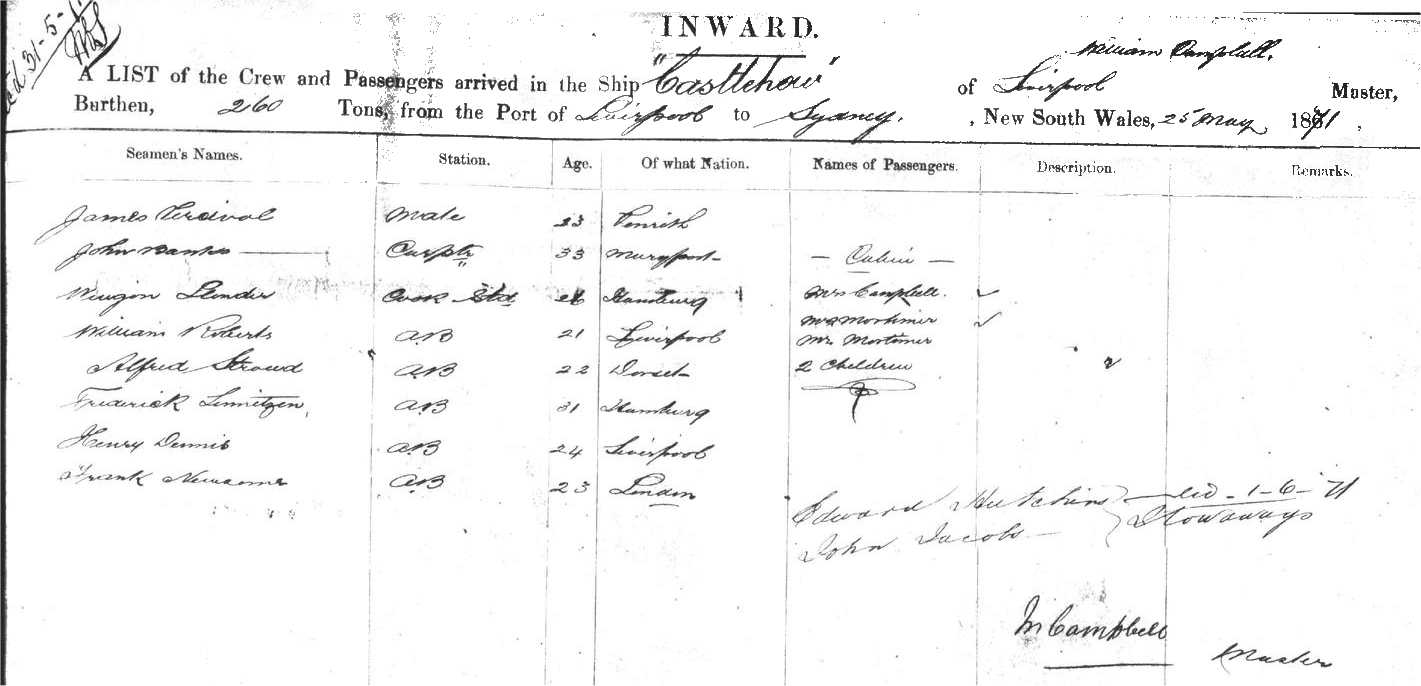 31-5-
INWARD.
William Campbell.
A LIST of the Crew and Passengers arrived in the Ship "Castlehow" of Liverpool Master,
Burthen, 260 Tons, from the Port of Liverpool to Sydney. , New South Wales, 25 May 1871 ,
Seamen's Names. Station. Age. Of what Nation. Names of Passengers. Description. Remarks.
James Percival Mate 33 Penrith
John Banks Carptr 33 Maryport
— Cabin —
Cook Std 26 Hamburg Mrs Campbell.
Mrs Mortimer
William Roberts AB 21 Liverpool Mr Mortimer
Alfred Stroud AB 22 Dorset 2 Children
Frederick AB 31 Hamburg
Henry Dennis AB 24 Liverpool
Frank Newsome AB 23 London
Edward Hutchins 1-6-71
John Jacobs Stowaways
Campbell
Master